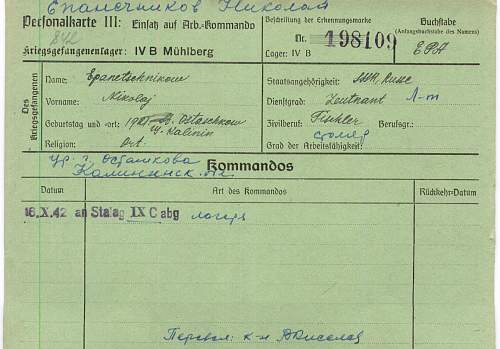 Епанечников Николай
Personalkarte III: Einsatz auf Arb.-Kommando
Beschriftung der Erkennungsmarke
Nr. 198109
Lager: IV B
Buchstabe
(Anfangsbuchstabe des Namens)
EPA
842
Kriegsgefangenenlager: IV B Mühlberg
Des Kriegsgefangenen
Name: Epanetschnikow
Vorname: Nikolaj
Geburtstag und -ort: 1905 Ostaschkow
Kalinin
Religion: ort.
Staatsangehörigkeit: Russe
Dienstgrad: Leutnant Л-т
Zivilberuf: Tischler Berufsgr.:
столяр
Grad der Arbeitsfähigkeit:
ур. г. Осташкова
Калининск.
Kommandos
Datum
Art des Kommandos
Rückkehr-Datum
16.X.42 an Stalag IX C abg
Перевел: к-н